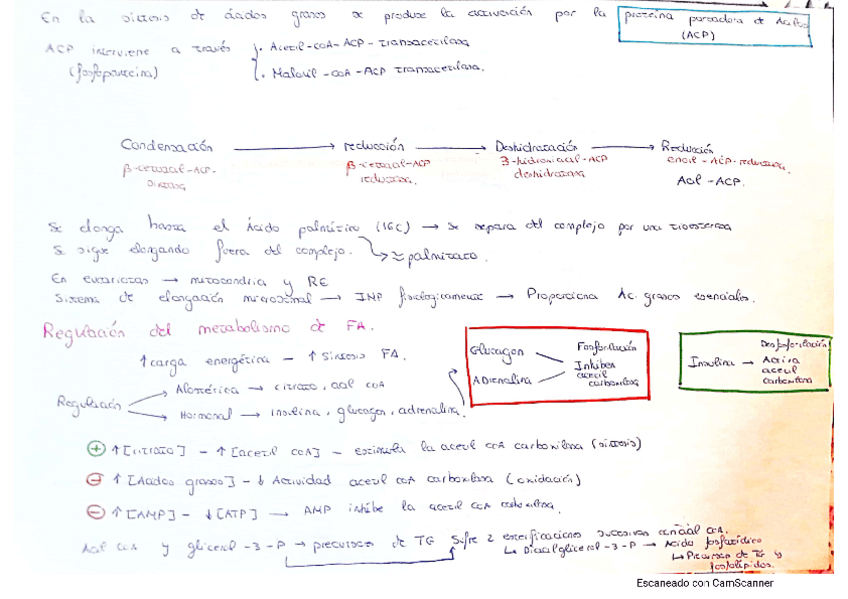 En la síntesis de ácidos grasos se produce la activación por la proteína portadora de Acilos
(ACP)
ACP interviene a través · Acetil-COA-ACP-transacetilasa
(fosfopanteína) · Malonil-COA-ACP transacetilasa.
Condensación → reducción → Deshidratación → Reducción
β-cetoacil-ACP- β-cetoacil-ACP 3-hidroxiacil-ACP enoil-ACP-reductasa.
sintasa reductasa. deshidratasa
Acil-ACP.
Se elonga hasta el Ácido palmítico (16C) → Se separa del complejo por una tioesterasa
Se sigue elongando fuera del complejo. ↳ ≈ palmitato.
En eucariotas → mitocondria y RE
Sistema de elongación microsomal → IMP fisiológicamente → Proporciona Ac. grasos esenciales.
Regulación del metabolismo de FA.
↑ carga energética - ↑ Síntesis FA.
Regulación
Alostérica → citrato, acil CoA
Hormonal → insulina, glucagón, adrenalina.
Glucagon
Adrenalina
Fosforilación
Inhiben
acetil
carboxilasa
Insulina →
Desfosforilación
Activa
acetil
carboxilasa
⊕ ↑ [citrato] - ↑ [acetil CoA] - estimula la acetil CoA carboxilasa (síntesis)
⊖ ↑ [Ácidos grasos] - ↓ Actividad acetil CoA carboxilasa (oxidación)
⊖ ↑ [AMP] - ↓ [ATP] → AMP inhibe la acetil CoA carboxilasa.
Acil CoA y glicerol-3-P → precursores de TG Sufre 2 esterificaciones sucesivas con acil CoA.
↳ Diacilglicerol-3-P → Ácido fosfatídico
↳ Precursor de TG y
fosfolípidos.
Escaneado con CamScanner